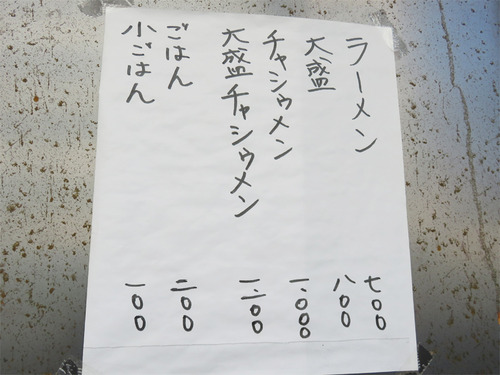 ラーメン 七〇〇
大盛 八〇〇
チャシウメン 一、〇〇〇
大盛チャシウメン 一、一〇〇
ごはん 二〇〇
小ごはん 一〇〇